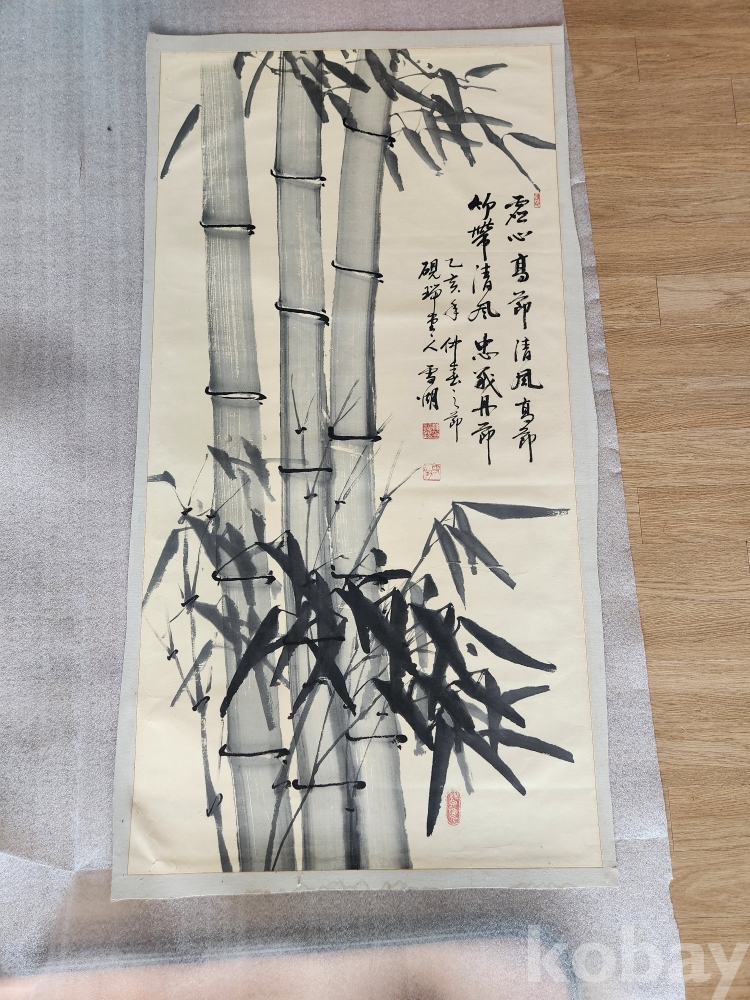 虛心高節清風高節
竹帶清風忠義丹節
乙亥年仲春之節
硯瑞堂人雪湖
kobay